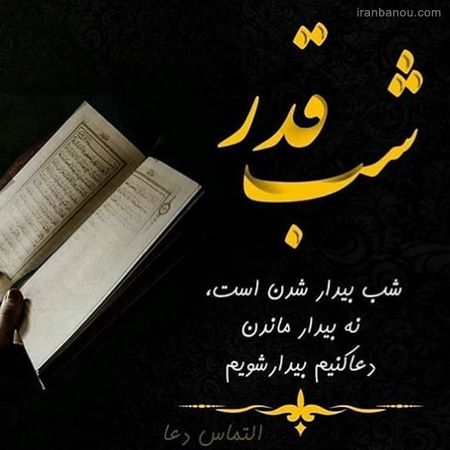 iranbanou.com
شب قدر
شب بیدار شدن است،
نه بیدار ماندن
دعاکنیم بیدارشویم
التماس دعا